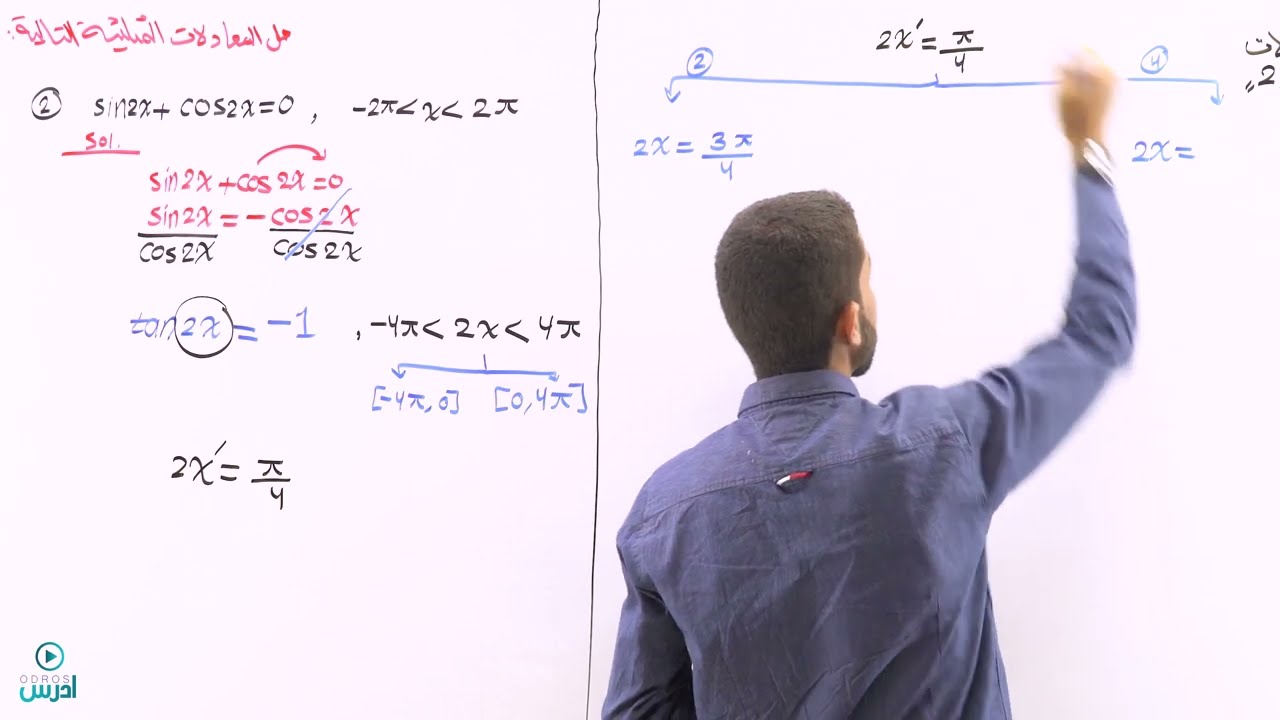 حل المعادلات المثلثية التالية:
② sin2x + cos2x = 0 , -2π < x < 2π
Sol.
sin2x + cos2x = 0
sin2x = - cos2x
cos2x cos2x
tan 2x = -1 , -4π < 2x < 4π
[-4π, 0] [0, 4π]
2x′ = π/4
2x′ = π/4
② ④
2x = 3π/4
2x =
ODROS
ادرس